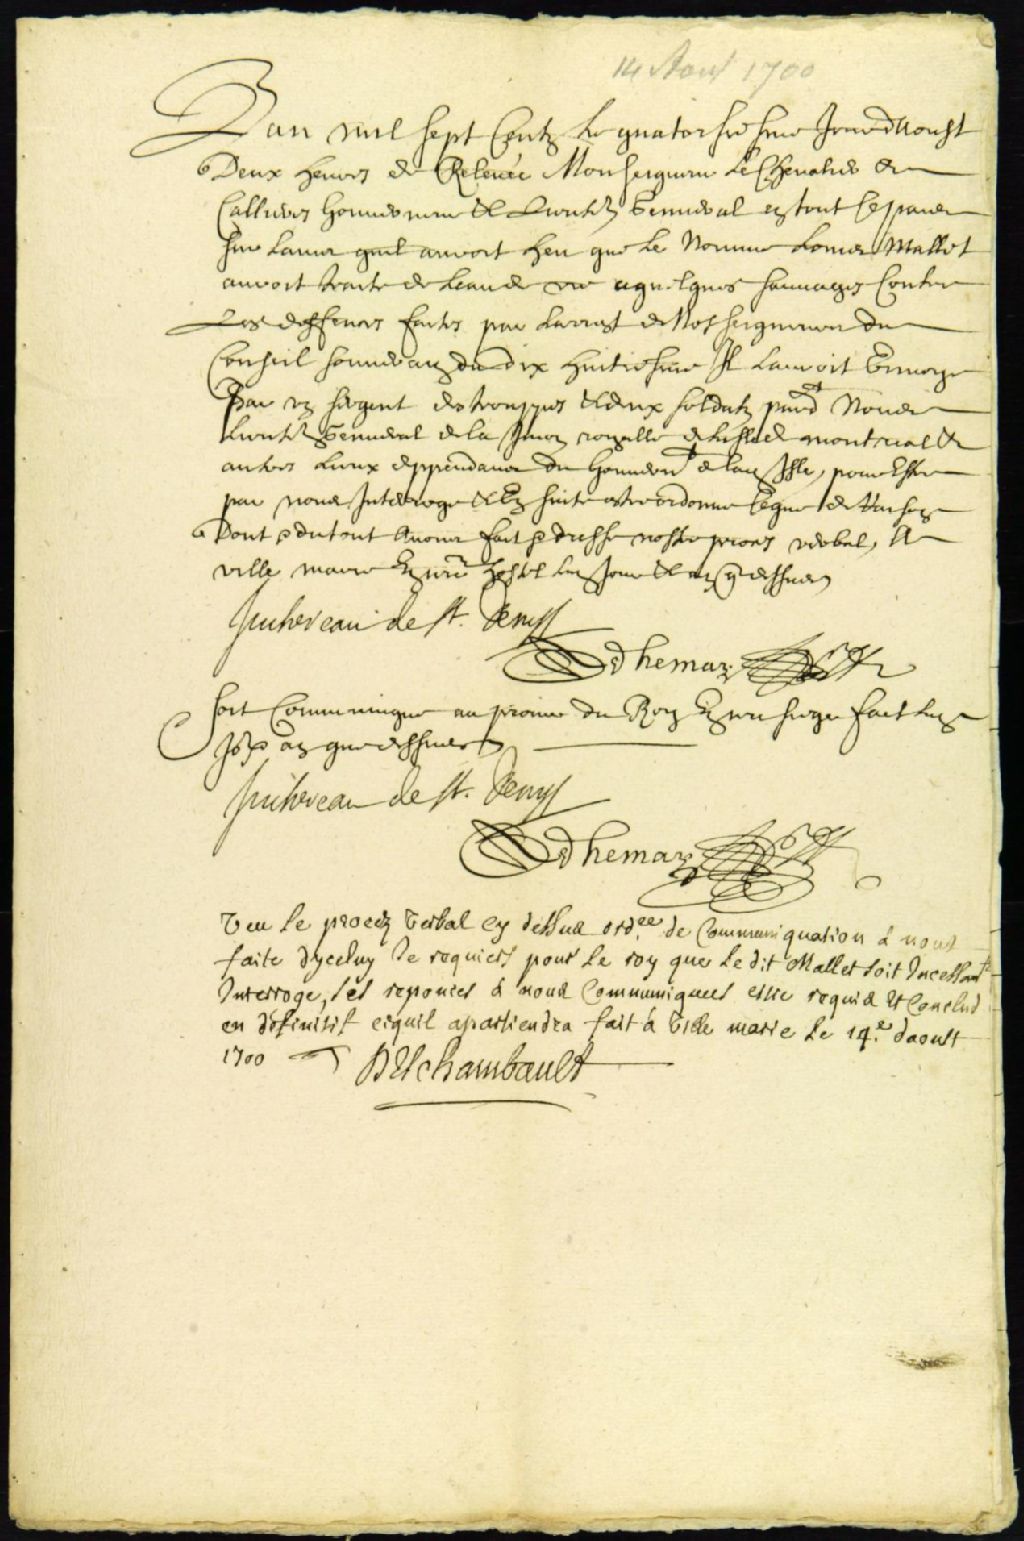 14 Aoust 1700
Lan mil sept Centz Le quatorsiesme Jour d'Aoust
Deux heures de Relevée Monseigneur Le Chevallier de
Callieres Gouverneur & Lieuten General en tout ce pais
sur Lavis quil auroit heu que Le Nomme Louis Mallet
auroit traite de Leau de vie a quelques sauvages Contre
Les deffences faites par Larrest de Nosseigneurs du
Conseil souverain du dix huitiesme Il Lauroit Envoye
Par un sergent des trouppes & deux soldatz pard Nous
Lieuten General de la Jurion royalle de Lisle de montreal &
autres Lieux deppendance du Gouvernt de lad Isle, pour Estre
par nous Interroge & En suite estre ordonne ce que de raison
Dont & du tout Avons fait & dresse nostre proces verbal, A
ville marie En nre hostel Les Jour & an q dessus
Juchereau de St. Denys
Adhemar
Soit Communique au procureur du Roy En ce siege fait Les
Jour & an que dessus
Juchereau de St. Denys
Adhemar
Veu le procez verbal cy dessus ord.ce de Communiquation à nous
faite dyceluy Je requiers pour Le roy que Ledit Mallet soit Incessamt
Interroge, ses reponces à nous Communiquees estre requis Et Conclud
en définitif ce quil apartiendra fait à Ville marie Le 14.e daoust
1700 DEschambault